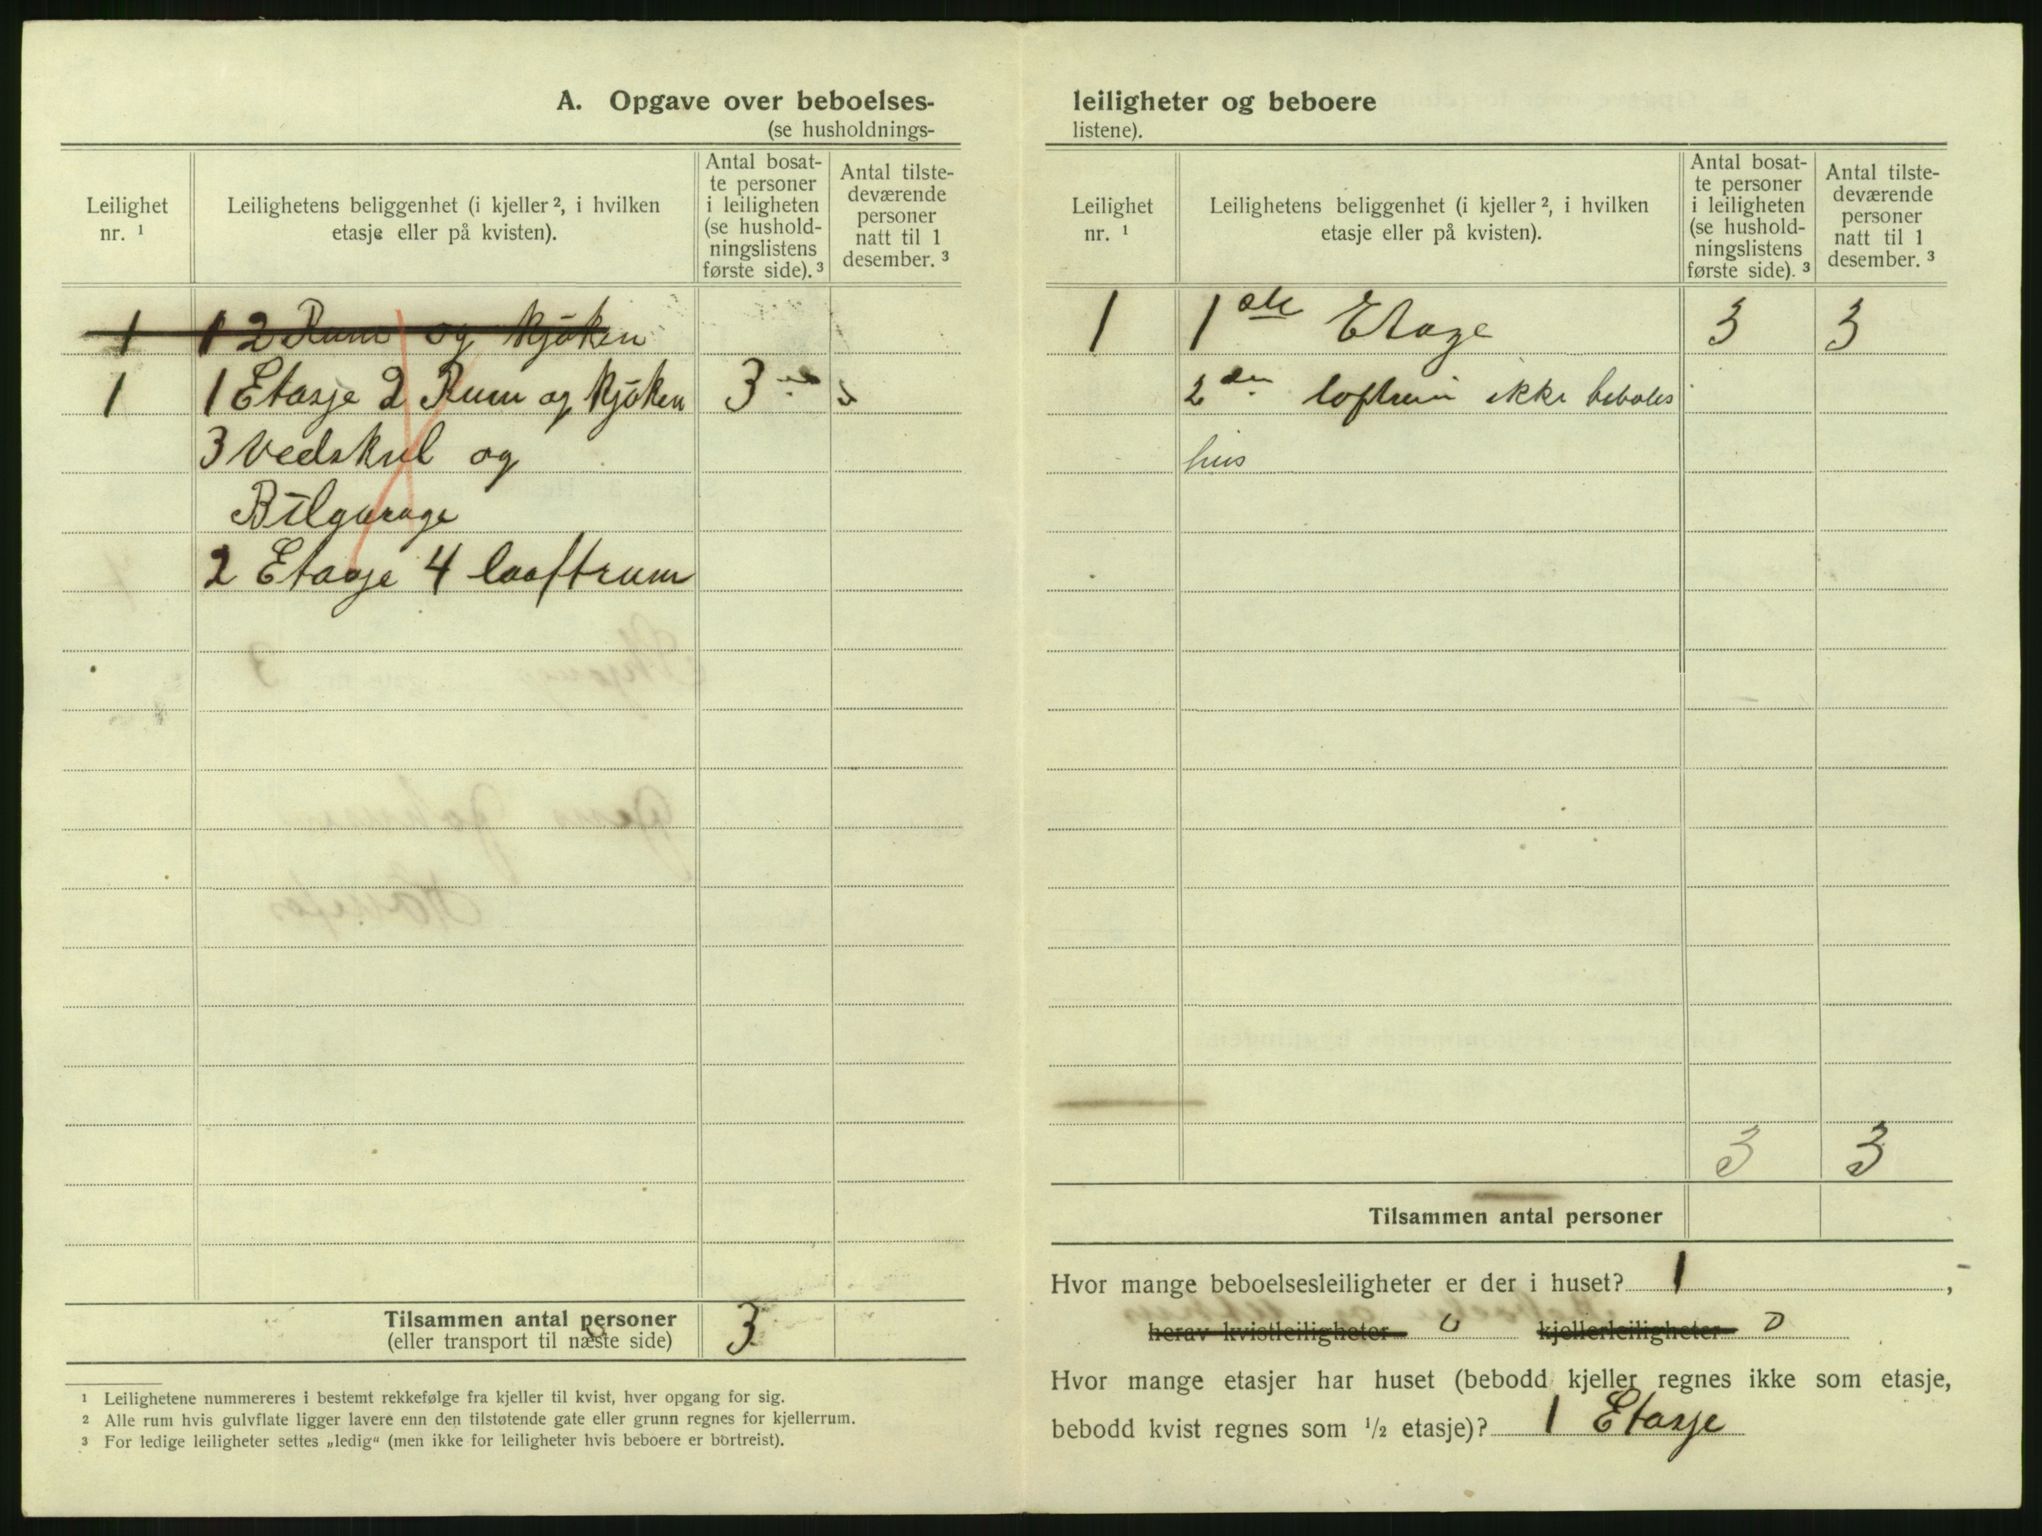 A. Opgave over beboelses-
(se husholdnings-
Leilighet nr. ¹
Leilighetens beliggenhet (i kjeller ², i hvilken
etasje eller på kvisten).
Antal bosat-
te personer
i leiligheten
(se hushold-
ningslistens
første side). ³
Antal tilste-
deværende
personer
natt til 1
desember. ³
1 1 2 Rum og kjøken
1 1 Etasje 2 Rum og kjøken 3
3 Vedskul og
Bilgarage
2 Etasje 4 looftrum
Tilsammen antal personer
(eller transport til næste side) 3
¹ Leilighetene nummereres i bestemt rekkefølge fra kjeller til kvist, hver opgang for sig.
² Alle rum hvis gulvflate ligger lavere enn den tilstøtende gate eller grunn regnes for kjellerrum.
³ For ledige leiligheter settes „ledig“ (men ikke for leiligheter hvis beboere er bortreist).
leiligheter og beboere
listene).
Leilighet nr. ¹
Leilighetens beliggenhet (i kjeller ², i hvilken
etasje eller på kvisten).
Antal bosat-
te personer
i leiligheten
(se hushold-
ningslistens
første side). ³
Antal tilste-
deværende
personer
natt til 1
desember. ³
1 1ste Etage 3 3
2den ikke beboles
hus
3 3
Tilsammen antal personer
Hvor mange beboelsesleiligheter er der i huset? 1 ,
herav kvistleiligheter 0 kjellerleiligheter 0
Hvor mange etasjer har huset (bebodd kjeller regnes ikke som etasje,
bebodd kvist regnes som ½ etasje)? 1 Etasje